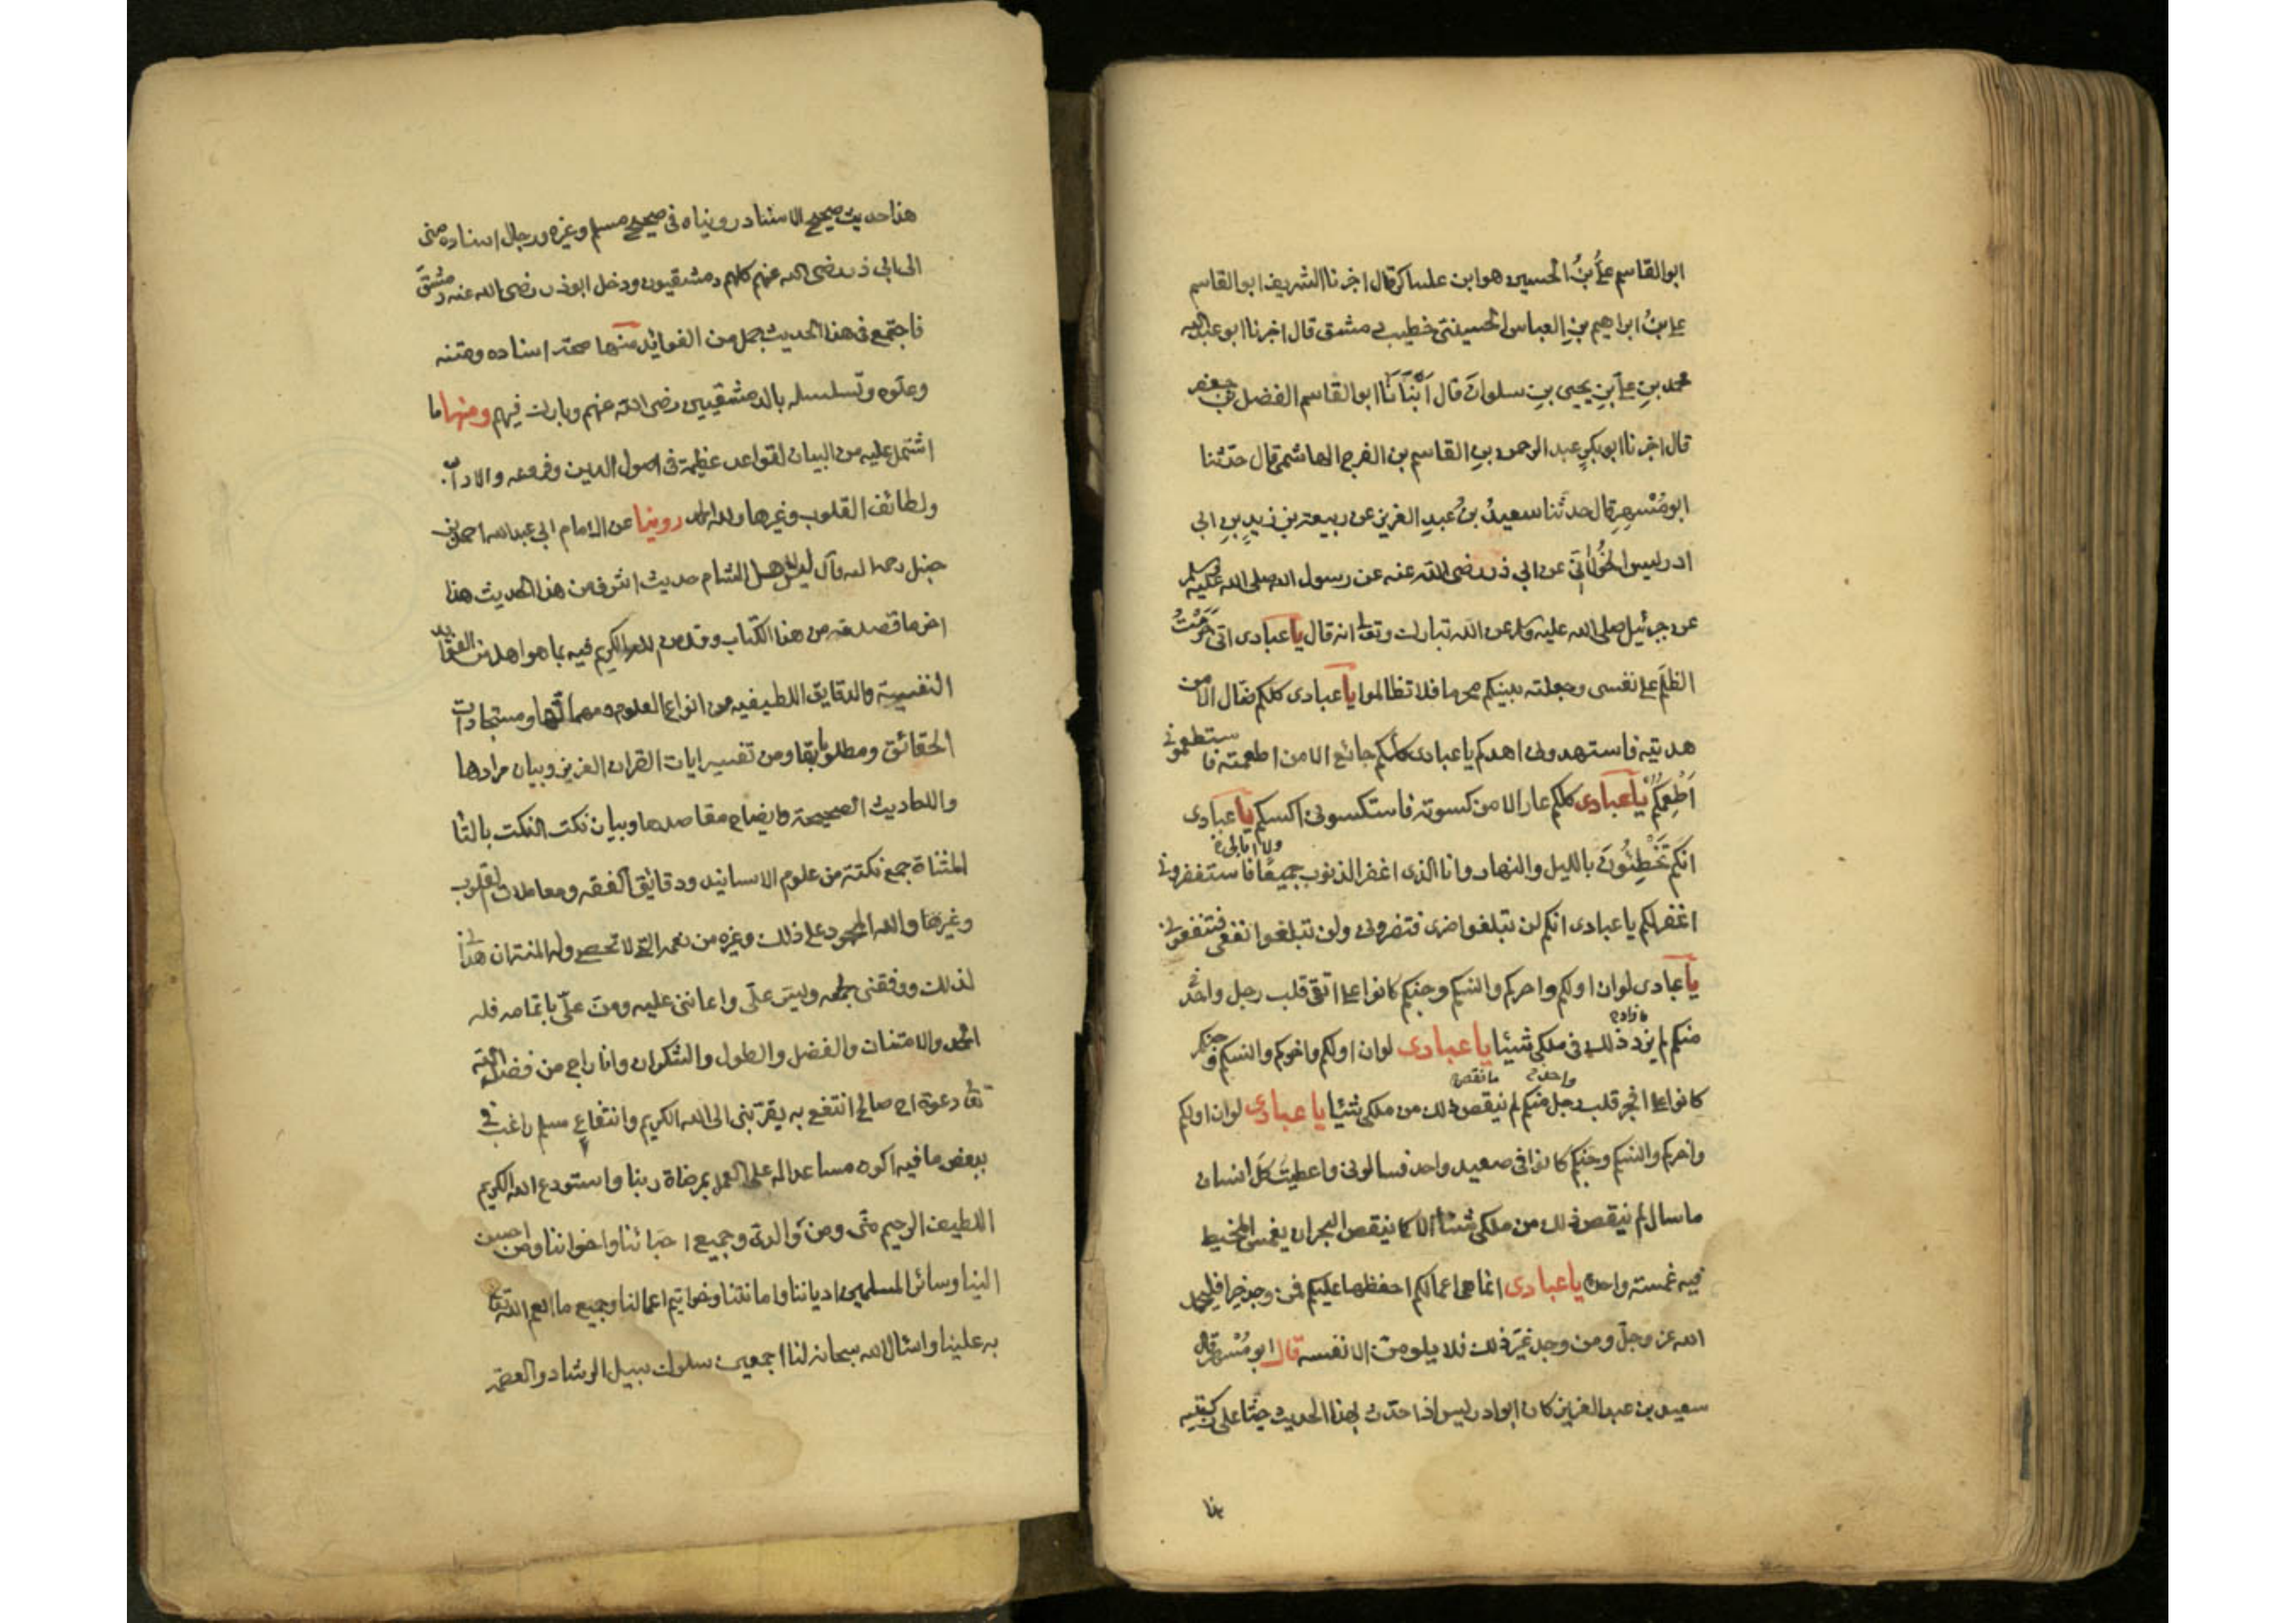 ابوالقاسم علىُّ بنُ الحسين هو ابن عساكر قال اخبرنا الشريف ابوالقاسم
على بنُ ابراهيم بنِ العباس الحسينى خطيب دمشق قال اخبرنا ابو عبدالله
محمد بنِ علىِّ بنِ يحيى بنِ سلوان قال اَنْبَانَا ابوالقاسم الفضل بن جعفر
قال اخبرنا ابوبكرٍ عبد الرحمن بنِ القاسم بن الفرج الهاشمى قال حدثنا
ابومُسْهِرٍ قال حدثنا سعيدُ بنُ عبدِ العزيز عن ربيعة بن زيدٍ بنِ ابى
ادريس الخَوْلَانىّ عن ابى ذر رضى الله عنه عن رسول الله صلى الله عليه وسلم
عن جبرئيل صلى الله عليه وسلم عن الله تبارك وتعالى انه قال يا عبادى انى حَرَّمْتُ
الظلمَ على نفسى وجعلته بينكم محرما فلا تظالموا يا عبادى كلكم ضال الا من
هديته فاستهدونى اهدكم يا عبادى كلكم جائع الا من اطعمته فاستطعمونى
اُطْعِمْكُمْ يا عبادى كلكم عار الا من كسوته فاستكسونى اكسكم يا عبادى
انكم تَخْطِئُونَ بالليل والنهار وانا الذى اغفر الذنوب جميعًا ولا ابالى فاستغفرونى
اغفر لكم يا عبادى انكم لن تبلغوا ضرى فتضرونى ولن تبلغوا نفعى فتنفعونى
يا عبادى لو ان اولكم واخركم وانسكم وجنكم كانوا على اتقى قلب رجل واحد
منكم لم يزد ما زاد ذلك فى ملكى شيئا يا عبادى لو ان اولكم واخركم وانسكم وجنكم
كانوا على افجر قلب رجل واحد منكم لم ينقص ما نقص ذلك من ملكى شيئا يا عبادى لو ان اولكم
واخركم وانسكم وجنكم كانوا فى صعيد واحد فسالونى واعطيت كلّ انسان
ما سال لم ينقص ذلك من ملكى شيئا الا كما ينقص البحر ان يغمس المخيط
فيه غمسة واحدة يا عبادى انما هى اعمالكم احفظها عليكم فمن وجد خيرا فليحمد
الله عز وجلّ ومن وجد غيرَ ذلك فلا يلومنّ الا نفسه قال ابو مُسْهِر قال
سعيد بن عبد العزيز كان ابو ادريس اذا حدّث بهذا الحديث جثا على ركبتيه
هذا حديث صحيح الاسناد رويناه فى صحيح مسلم وغيره ورجال اسناده منى
الى ابى ذر رضى الله عنهم كلهم دمشقيون ودخل ابوذر رضى الله عنه دمشقَ
فاجتمع فى هذا الحديث جمل من الفوائد منها صحة اسناده ومتنه
وعلوّه وتسلسله بالدمشقيين رضى الله عنهم وبارك فيهم ومنها ما
اشتمل عليه من البيان لقواعد عظيمة فى اصول الدين وفروعه والاداب
ولطائف القلوب وغيرها ولله الحمد روينا عن الامام ابى عبدالله احمد بن
حنبل رحمه الله قال ليس لاهل الشام حديث اشرف من هذا الحديث هذا
اخر ما قصدته من هذا الكتاب وقد من الله الكريم فيه بما هو اهله من الفوائد
النفيسة والدقايق اللطيفيه من انواع العلوم ومهماتها ومستجادات
الحقائق ومطلوباتها ومن تفسير ايات القران العزيز وبيان مرادها
والاحاديث الصحيحة وايضاح مقاصدها وبيان نكت النكت بالتا
المثناة جمع نكتة من علوم الاسانيد ودقايق الفقه ومعاملات القلوب
وغيرها والله المحمود على ذلك وغيره من نعمه التى لا تحصى وله المنة ان هدانى
لذلك ووفقنى لجمعه ويسّر علىّ واعاننى عليه ومنّ علىّ باتمامه فله
الحمد والامتنان والفضل والطول والشكران وانا راج من فضل الله
تعالى دعوة اخ صالح انتفع به يقرّبنى الى الله الكريم وانتفاعِ مسلم راغب فى
ببعض ما فيه اكون مساعدا له على العمل بمرضاة ربنا واستودع الله الكريم
اللطيف الرحيم منّى ومن والدىّ وجميع احبائنا واخواننا ومن احسن
الينا وسائر المسلمين ادياننا واماناتنا وخواتيم اعمالنا وجميع ما انعم الله تعالى
به علينا واسال الله سبحانه لنا اجمعين سلوك سبيل الرشاد والعصمة